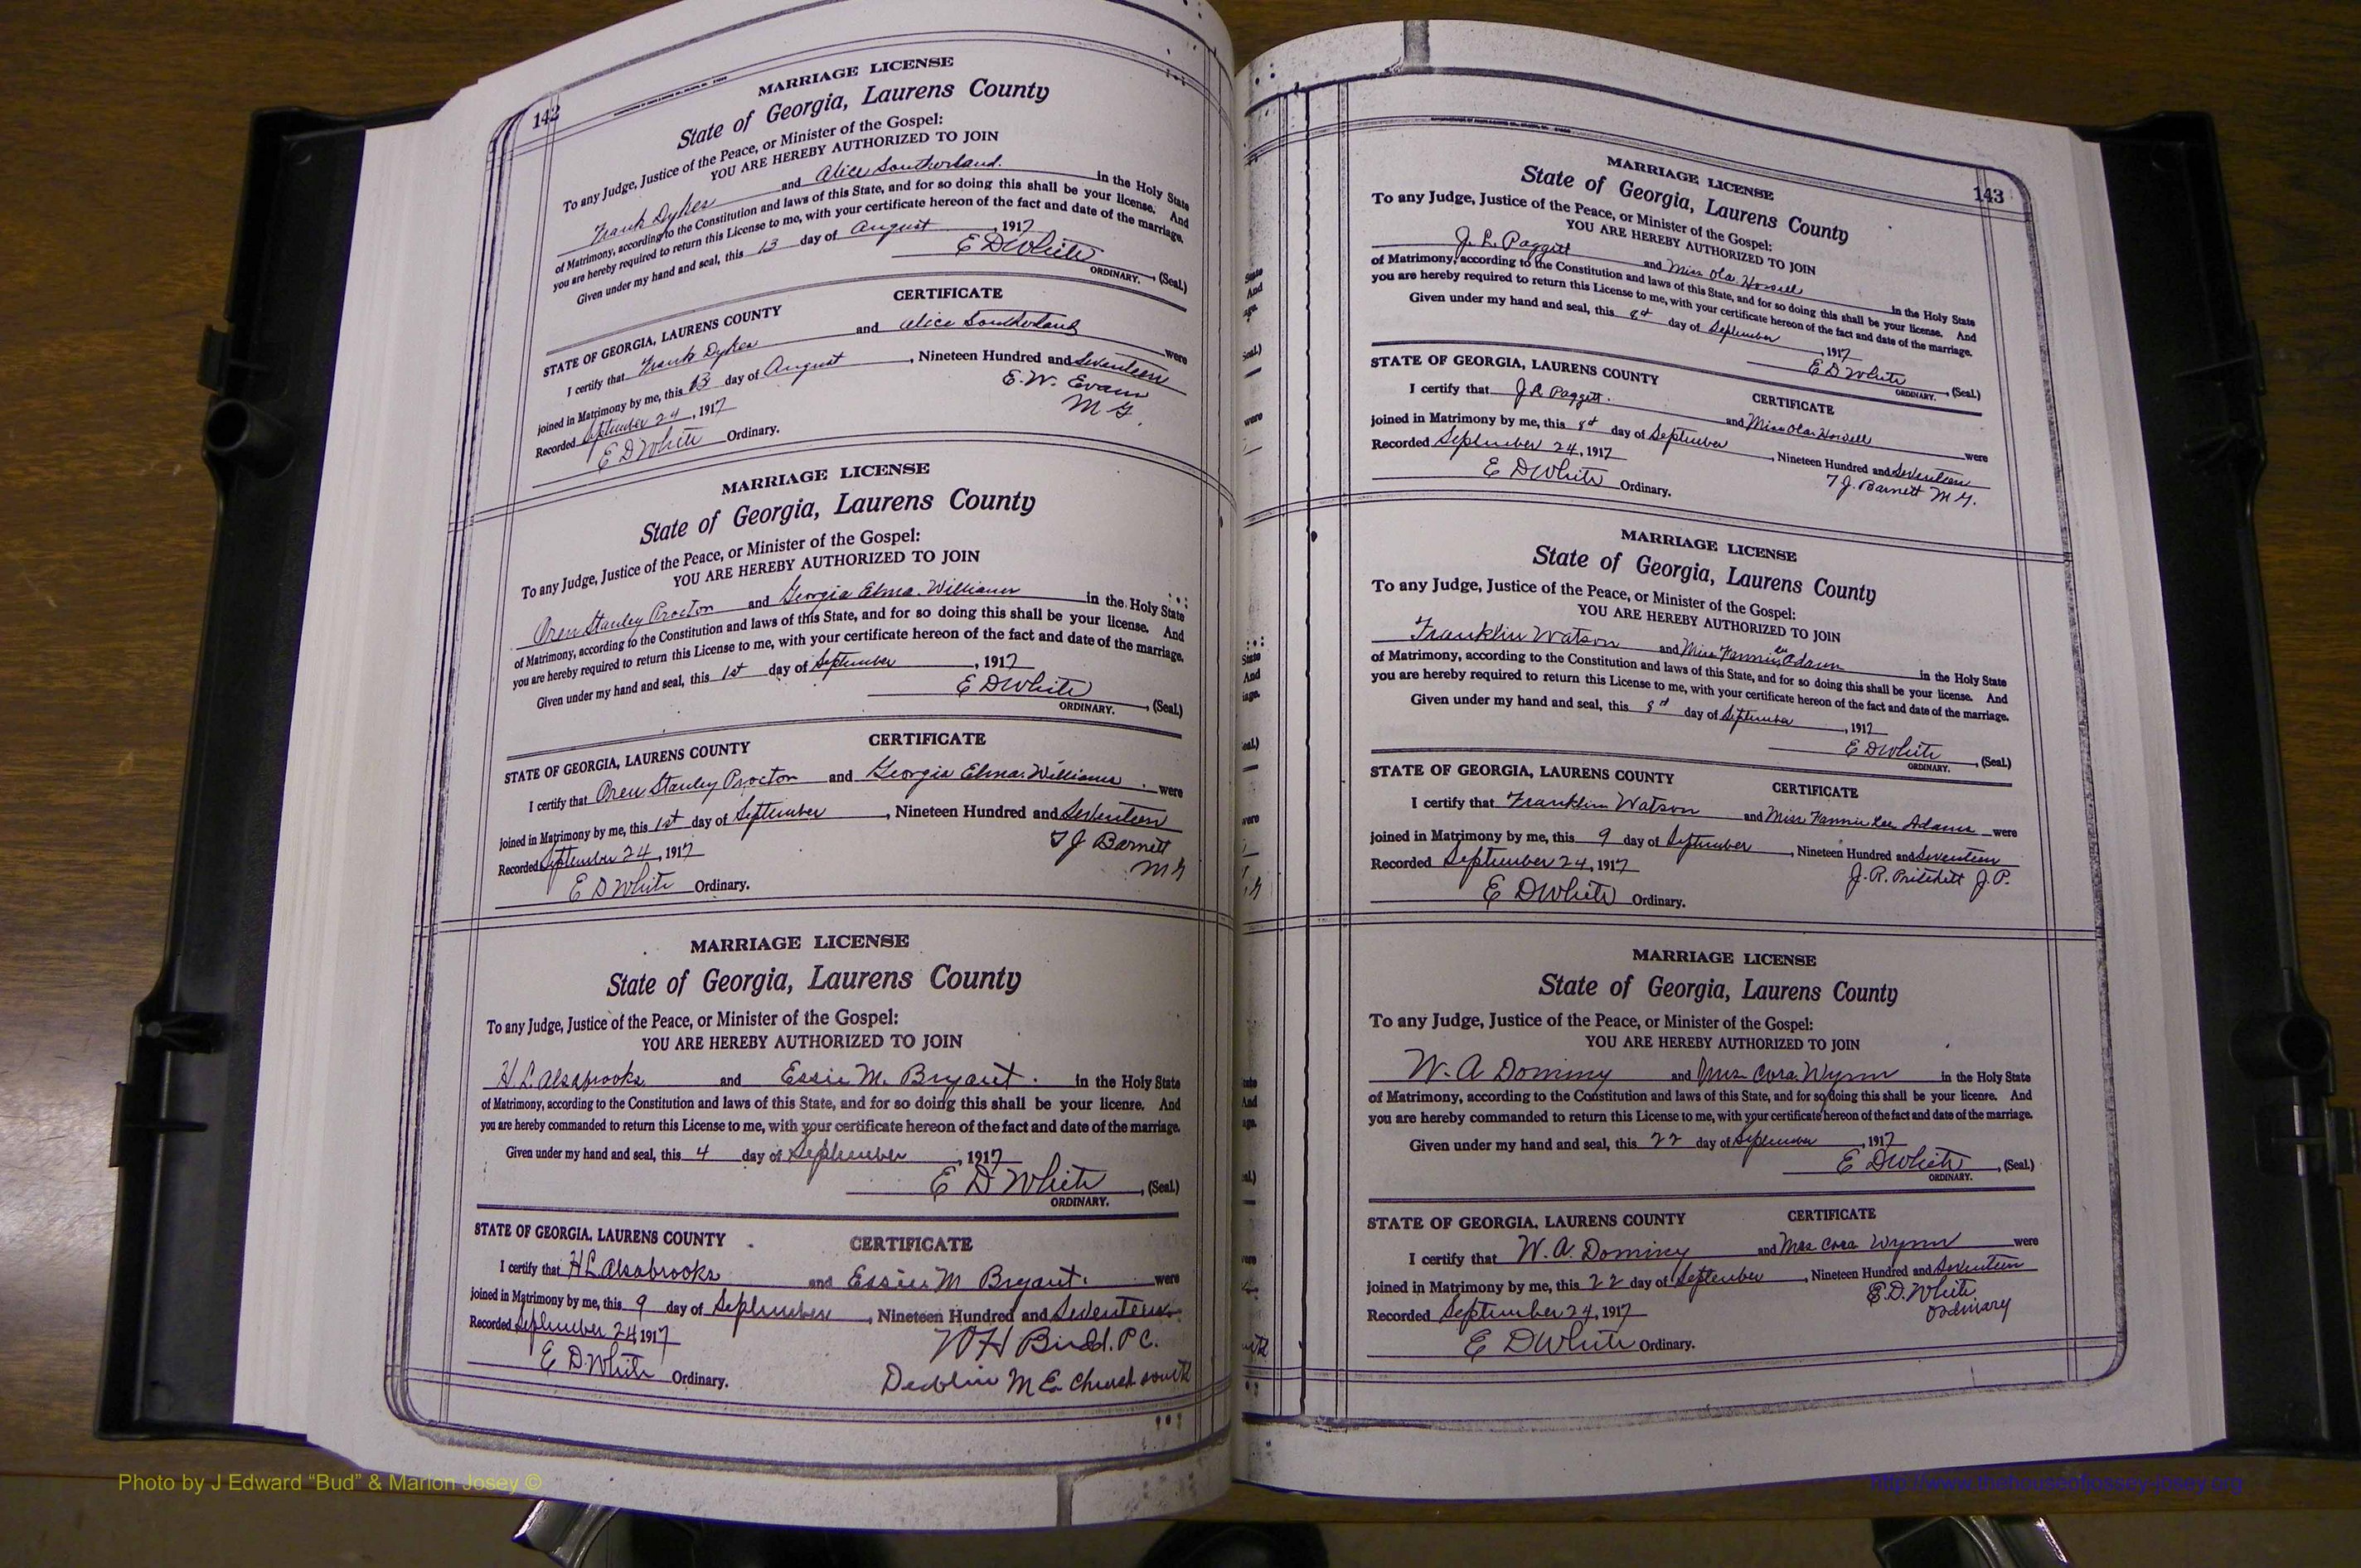 142
MARRIAGE LICENSE
State of Georgia, Laurens County
To any Judge, Justice of the Peace, or Minister of the Gospel:
YOU ARE HEREBY AUTHORIZED TO JOIN
Frank Dykes and Alice Southerland. in the Holy State
of Matrimony, according to the Constitution and laws of this State, and for so doing this shall be your license. And
you are hereby required to return this License to me, with your certificate hereon of the fact and date of the marriage.
Given under my hand and seal, this 13 day of August, 1917
E D White, (Seal.)
ORDINARY.
CERTIFICATE
STATE OF GEORGIA, LAURENS COUNTY
I certify that Frank Dykes and Alice Southerland were
joined in Matrimony by me, this 13 day of August, Nineteen Hundred and Seventeen
Recorded September 24, 1917
E. W. Evans
M G.
E D White Ordinary.
MARRIAGE LICENSE
State of Georgia, Laurens County
To any Judge, Justice of the Peace, or Minister of the Gospel:
YOU ARE HEREBY AUTHORIZED TO JOIN
Oren Stanley Procton and Georgia Elma Williams in the Holy State
of Matrimony, according to the Constitution and laws of this State, and for so doing this shall be your license. And
you are hereby required to return this License to me, with your certificate hereon of the fact and date of the marriage.
Given under my hand and seal, this 1st day of September, 1917
E D White, (Seal.)
ORDINARY.
CERTIFICATE
STATE OF GEORGIA, LAURENS COUNTY
I certify that Oren Stanley Procton and Georgia Elma Williams were
joined in Matrimony by me, this 1st day of September, Nineteen Hundred and Seventeen
Recorded September 24, 1917
T J Barnett
M G
E D White Ordinary.
MARRIAGE LICENSE
State of Georgia, Laurens County
To any Judge, Justice of the Peace, or Minister of the Gospel:
YOU ARE HEREBY AUTHORIZED TO JOIN
H L Alsabrooks and Essie M. Bryant. in the Holy State
of Matrimony, according to the Constitution and laws of this State, and for so doing this shall be your license. And
you are hereby commanded to return this License to me, with your certificate hereon of the fact and date of the marriage.
Given under my hand and seal, this 4 day of September, 1917
E D White, (Seal.)
ORDINARY.
STATE OF GEORGIA, LAURENS COUNTY
CERTIFICATE
I certify that H L Alsabrooks and Essie M Bryant. were
joined in Matrimony by me, this 9 day of September, Nineteen Hundred and Seventeen
Recorded September 24, 1917
W H Budd. P C.
E D White Ordinary.
Dublin M E Church South
143
MARRIAGE LICENSE
State of Georgia, Laurens County
To any Judge, Justice of the Peace, or Minister of the Gospel:
YOU ARE HEREBY AUTHORIZED TO JOIN
J. L. Paggitt and Miss Ola Howell in the Holy State
of Matrimony, according to the Constitution and laws of this State, and for so doing this shall be your license. And
you are hereby required to return this License to me, with your certificate hereon of the fact and date of the marriage.
Given under my hand and seal, this 8d day of September, 1917
E D White, (Seal.)
ORDINARY.
STATE OF GEORGIA, LAURENS COUNTY
CERTIFICATE
I certify that J L Paggitt. and Miss Ola Howell were
joined in Matrimony by me, this 8d day of September, Nineteen Hundred and Seventeen
Recorded September 24, 1917
T J. Barnett M G.
E D White Ordinary.
MARRIAGE LICENSE
State of Georgia, Laurens County
To any Judge, Justice of the Peace, or Minister of the Gospel:
YOU ARE HEREBY AUTHORIZED TO JOIN
Franklin Watson and Miss Fannie Lee Adams in the Holy State
of Matrimony, according to the Constitution and laws of this State, and for so doing this shall be your license. And
you are hereby required to return this License to me, with your certificate hereon of the fact and date of the marriage.
Given under my hand and seal, this 8d day of September, 1917
E D White, (Seal.)
ORDINARY.
STATE OF GEORGIA, LAURENS COUNTY
CERTIFICATE
I certify that Franklin Watson and Miss Fannie Lee Adams were
joined in Matrimony by me, this 9 day of September, Nineteen Hundred and Seventeen
Recorded September 24, 1917
J. R. Pritchett J. P.
E D White Ordinary.
MARRIAGE LICENSE
State of Georgia, Laurens County
To any Judge, Justice of the Peace, or Minister of the Gospel:
YOU ARE HEREBY AUTHORIZED TO JOIN
W. A Dominy and Mrs Cora Wynn in the Holy State
of Matrimony, according to the Constitution and laws of this State, and for so doing this shall be your license. And
you are hereby commanded to return this License to me, with your certificate hereon of the fact and date of the marriage.
Given under my hand and seal, this 22 day of September, 1917
E D White, (Seal.)
ORDINARY.
STATE OF GEORGIA, LAURENS COUNTY
CERTIFICATE
I certify that W. A. Dominy and Mrs Cora Wynn were
joined in Matrimony by me, this 22 day of September, Nineteen Hundred and Seventeen
Recorded September 24, 1917
E. D. White
Ordinary
E D White Ordinary.
Photo by J Edward “Bud” & Marion Josey ©
http://www.thehouseofjossey-josey.org